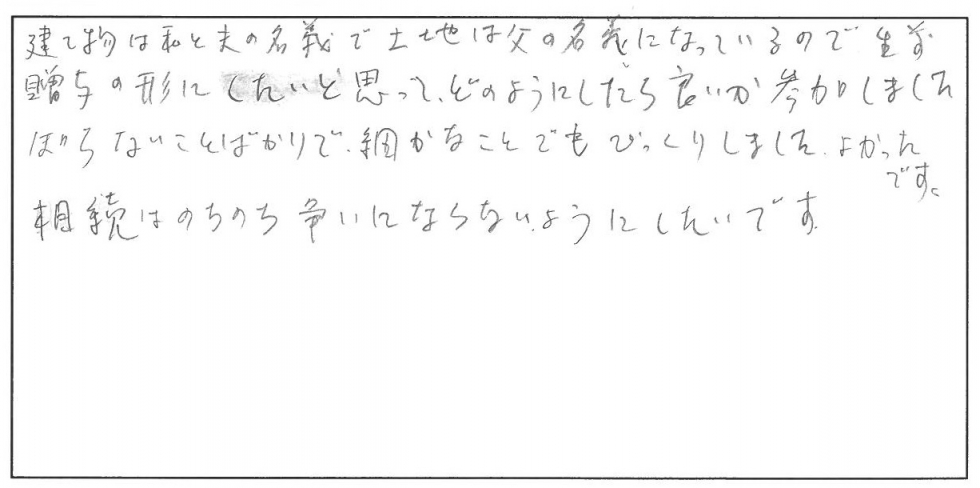 建て物は私と夫の名義で土地は父の名義になっているので生前
贈与の形にしたいと思って、どのようにしたら良いか参加しました
らないことばかりで、細かなことでもびっくりしました。よかった
です。
相続はのちのち争いにならないようにしたいです